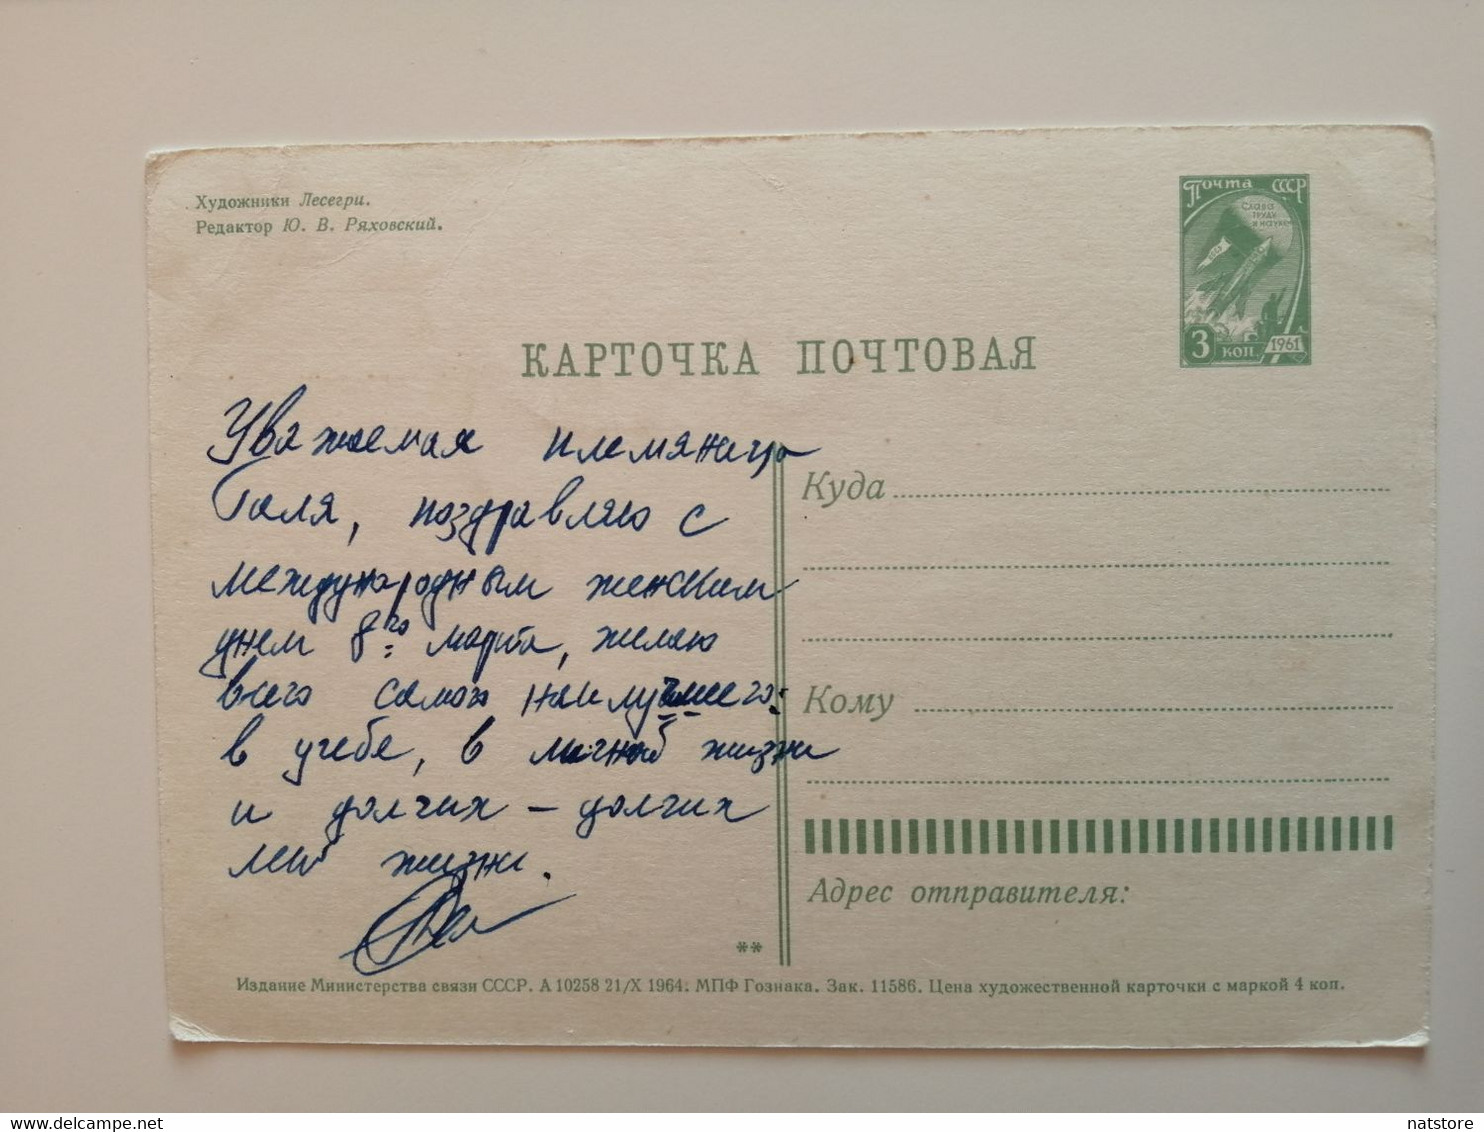 Художники Лесегри.
Редактор Ю. В. Ряховский.
Почта СССР
Слава
труду
и науке
3 коп 1961
КАРТОЧКА ПОЧТОВАЯ
Уважаемая племянница
Галя, поздравляю с
международным женским
днем 8го марта, желаю
всего самого наилучшего:
в учебе, в личной жизни
и долгих – долгих
лет жизни.
Куда
Кому
Адрес отправителя:
**
Издание Министерства связи СССР. А 10258 21/X 1964. МПФ Гознака. Зак. 11586. Цена художественной карточки с маркой 4 коп.
delcampe.net
natstore